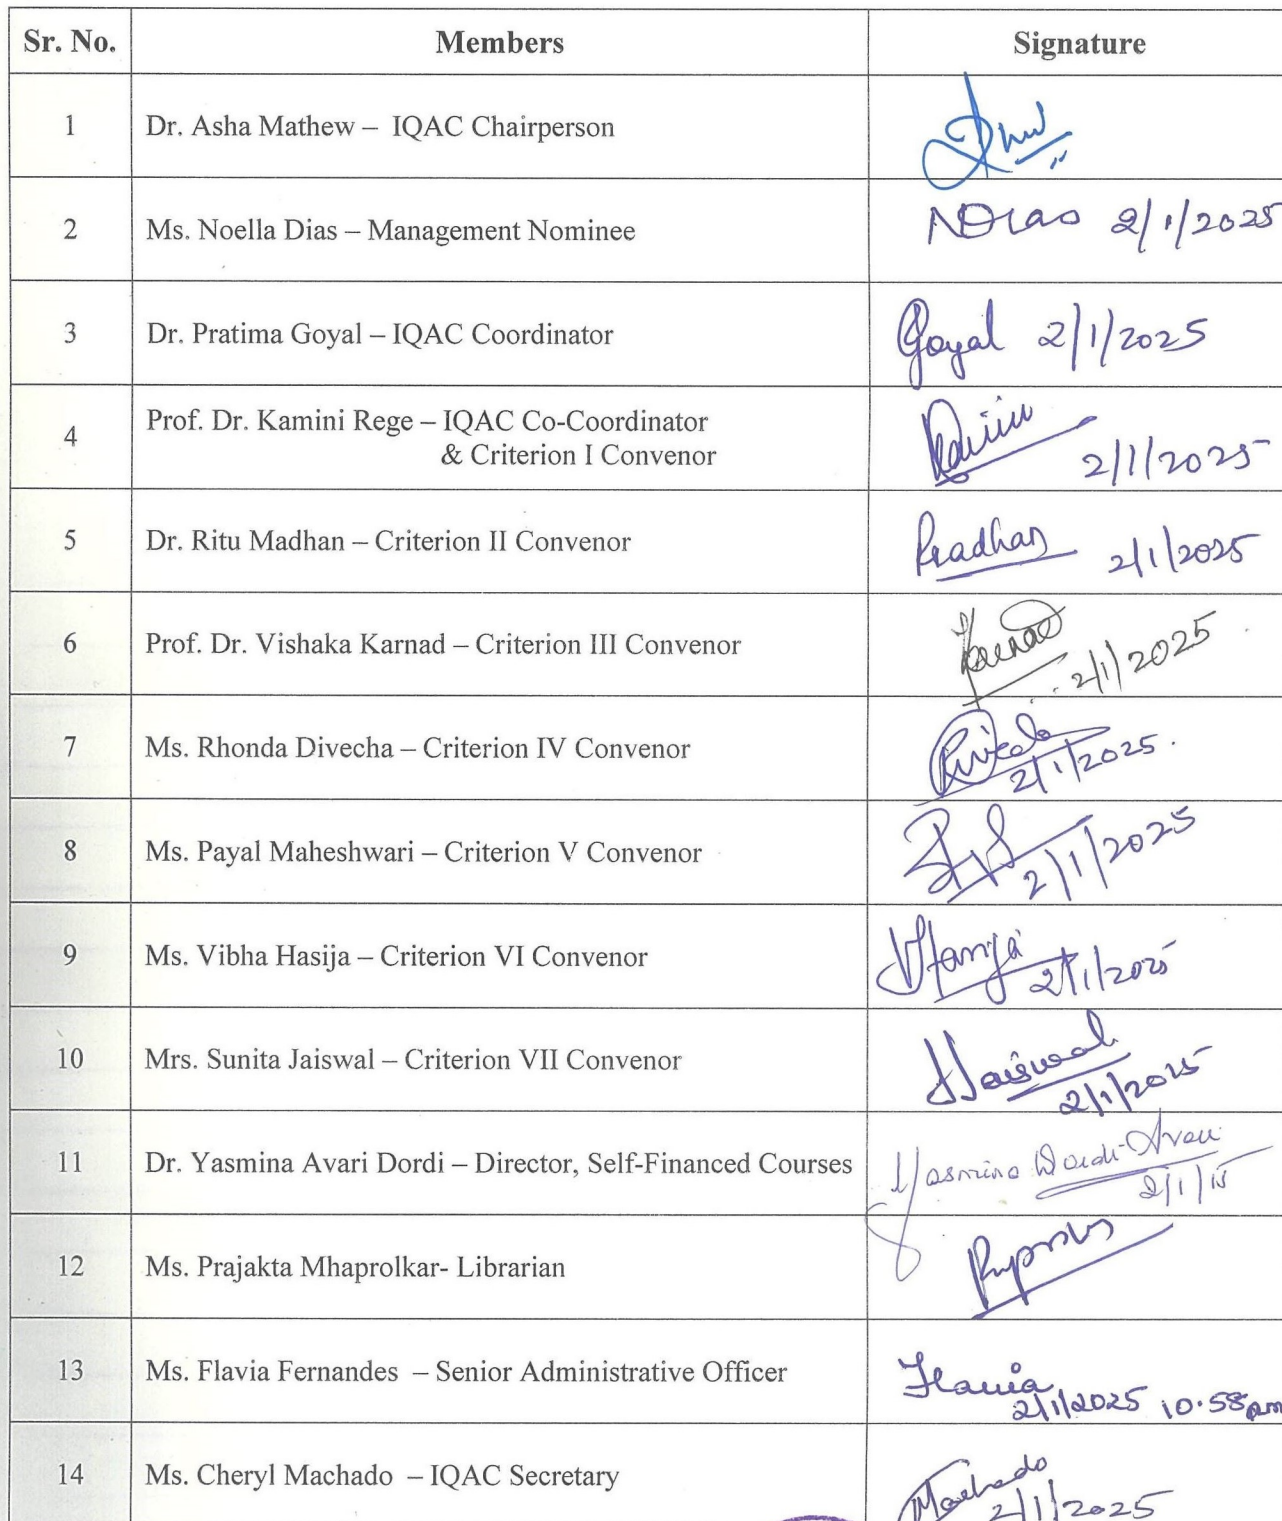 Sr. No. Members Signature
1 Dr. Asha Mathew – IQAC Chairperson
2 Ms. Noella Dias – Management Nominee NDias 2/1/2025
3 Dr. Pratima Goyal – IQAC Coordinator Goyal 2/1/2025
4 Prof. Dr. Kamini Rege – IQAC Co-Coordinator
& Criterion I Convenor 2/1/2025
5 Dr. Ritu Madhan – Criterion II Convenor 2/1/2025
6 Prof. Dr. Vishaka Karnad – Criterion III Convenor Karnad 2/1/2025
7 Ms. Rhonda Divecha – Criterion IV Convenor 2/1/2025
8 Ms. Payal Maheshwari – Criterion V Convenor 2/1/2025
9 Ms. Vibha Hasija – Criterion VI Convenor 2/1/2025
10 Mrs. Sunita Jaiswal – Criterion VII Convenor Jaiswal 2/1/2025
11 Dr. Yasmina Avari Dordi – Director, Self-Financed Courses Yasmina Dordi-Avari
12 Ms. Prajakta Mhaprolkar- Librarian
13 Ms. Flavia Fernandes – Senior Administrative Officer Flavia
2/1/2025 10.58am
14 Ms. Cheryl Machado – IQAC Secretary Machado
2/1/2025